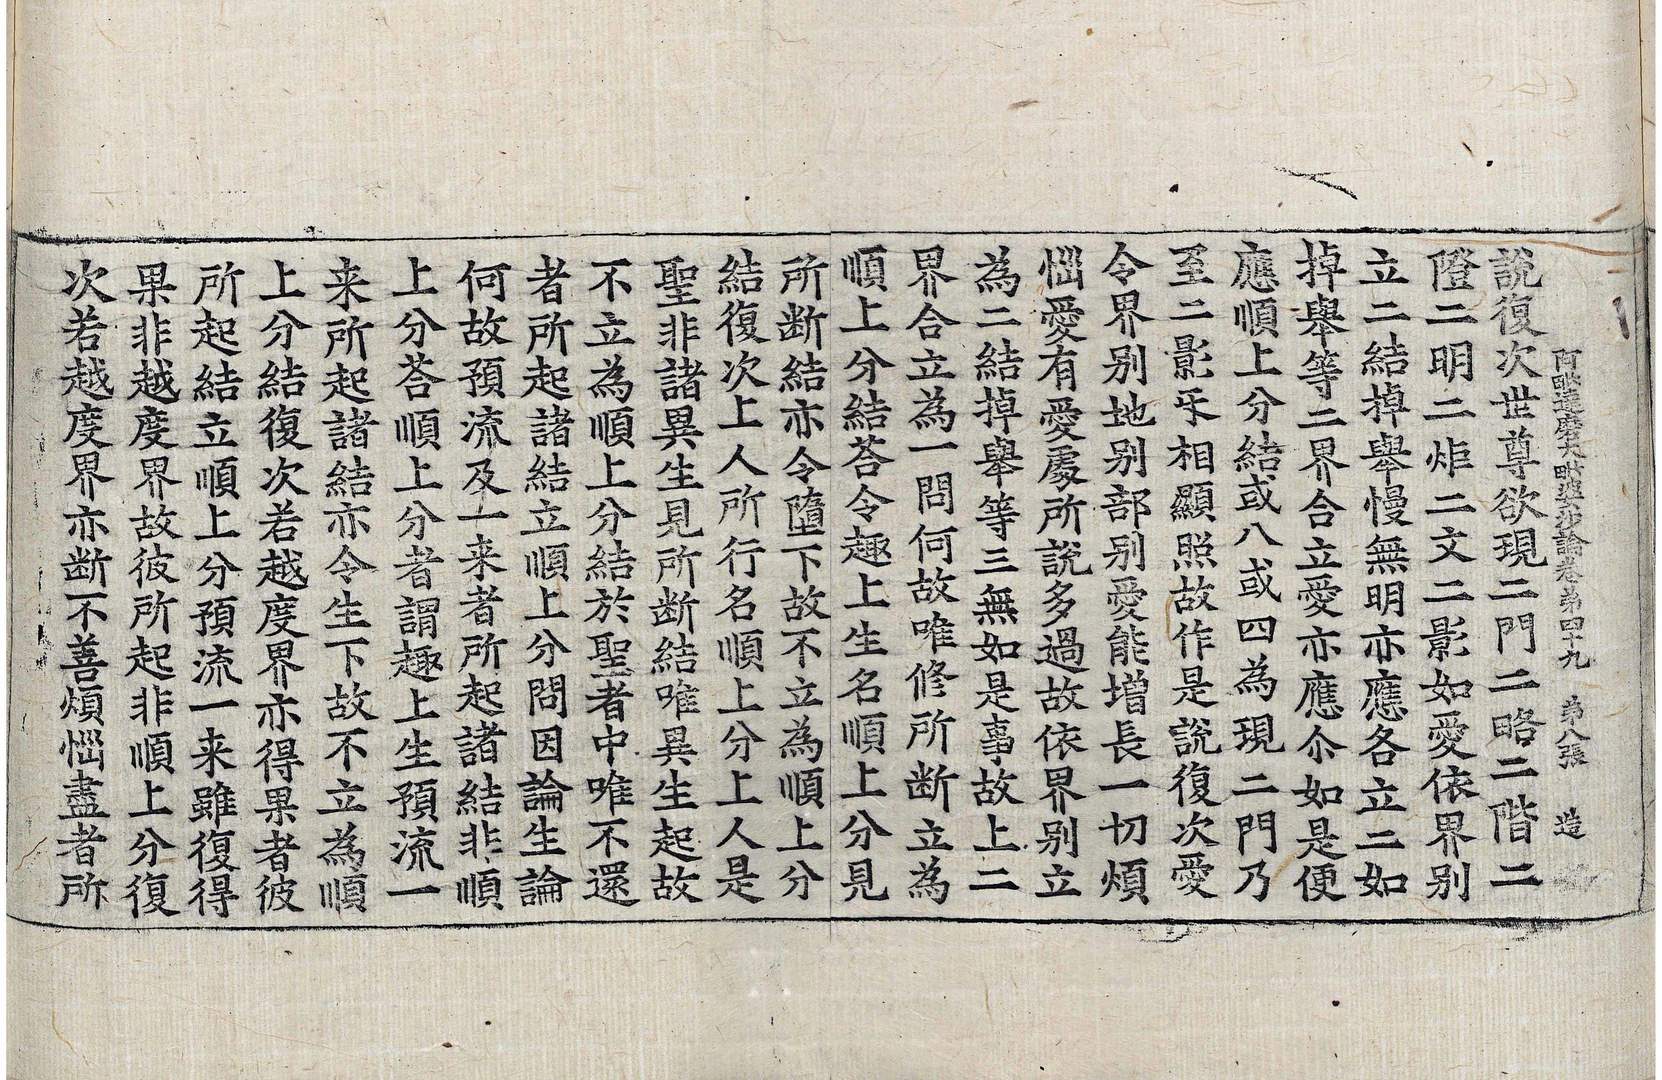 阿毗達磨大毗婆沙論卷第四十九 第八張 造
說復次世尊欲現二門二略二階二
隥二明二炬二文二影如愛依界別
立二結掉舉慢無明亦應各立二如
掉舉等二界合立愛亦應尒如是便
應順上分結或八或四為現二門乃
至二影乎相顯照故作是說復次愛
令界别地别部别愛能增長一切煩
惱愛有愛處所說多過故依界別立
為二結掉舉等三無如是事故上二
界合立為一問何故唯修所断立為
順上分結荅令趣上生名順上分見
所断結亦令墮下故不立為順上分
結復次上人所行名順上分上人是
聖非諸異生見所断結唯異生起故
不立為順上分結於聖者中唯不還
者所起諸結立順上分問因論生論
何故預流及一来者所起諸結非順
上分荅順上分者謂趣上生預流一
来所起諸結亦令生下故不立為順
上分結復次若越度界亦得果者彼
所起結立順上分預流一来雖復得
果非越度界故彼所起非順上分復
次若越度界亦断不善煩惱盡者所